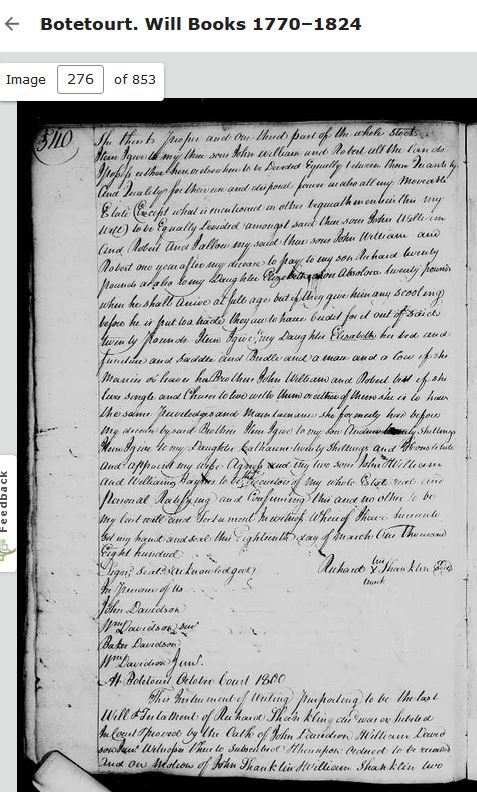 Botetourt. Will Books 1770–1824
Image 276 of 853
540
and one third part of the whole stock
Item I give to my three sons John William and Robert all the Lands
I possess either here or elsewhere to be Divided Equally between them Quantity
and Quality for their use and disposal forever as also all my Moveable
Estate (Except what is mentioned in other bequeathments in this my
will) to be Equally Devided amongst said three sons John William
and Robert And I allow my said three sons John William and
Robert one year after my decease to pay to my son Richard twenty
pounds as also to my Daughter Elizabeths son Absolom twenty pounds
when he shall arive at full age but if they give him any scooling
before he is put to a trade they are to have Credit for it out of said
twenty pounds Item I give my Daughter Elizabeth her bed and
furniture and Saddle and Bridle and a mare and a Cow if she
Marries or leaves her Brothers John William and Robert but if she
lives single and Chuses to live with them or either of them she is to have
the same Priviledges and Maintainance she formerly had before
my decease by said Brothers Item I give to my son Andrew twenty shillings
Item I give to my Daughter Catharine twenty Shillings and I Constitute
and appoint my wife Agness and my two sons John & William
and William to be the Executors of my whole Estate real and
Personal Ratifying and Confirming this and no other to be
my last will and Testament In witness Whereof I have hereunto
Set my hand and seal this Eighteenth day of March One Thousand
Eight hundred
Signd Seald & Acknowledged
Richard his X mark Shanklin Seal
In Presence of Us
John Davidson
Wm Davidson senr
Baker Davidson
Wm Davidson Junr
At Botetourt October Court 1800
This Instrument of Writing Purporting to be the last
Will & Testament of Richard Shanklin decd was exhibited
in Court & proved by the Oath of John Davidson William David
son Junr Witnesses thereto Subscribed & thereupon ordered to be recorded
And on Motion of John Shanklin & William Shanklin two
Feedback